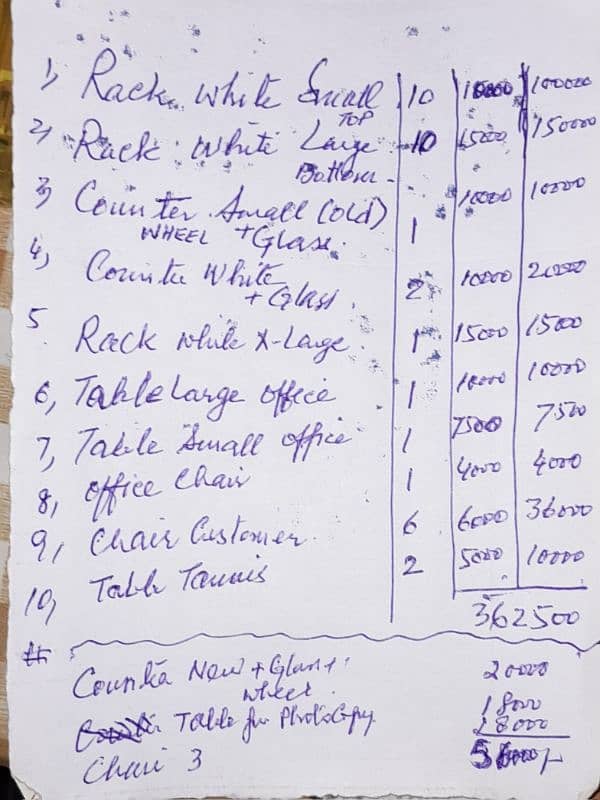 1, Rack white Small 10 10000 100000
TOP
2, Rack white Large 10 15000 150000
Bottom
3, Counter Small (old) 1 10000 10000
WHEEL + Glass.
4, Counter White 2 10000 20000
+ Glass.
5. Rack white X-Large. 1 15000 15000
6, Table Large office 1 10000 10000
7, Table Small office 1 7500 7500
8, office Chair 1 4000 4000
9, Chair Customer. 6 6000 36000
10, Table Tannis 2 5000 10000
362500
Counter New + Glass + 20000
wheel.
Table for Photocopy 18000
Chair 3 18000